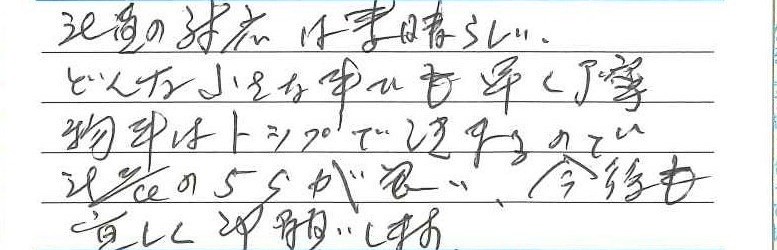 社員の対応は素晴らしい、
どんな小さな事でも早く丁寧
物事はトップで決まるので
社長の5Sが良い、今後も
宜しくお願いします。